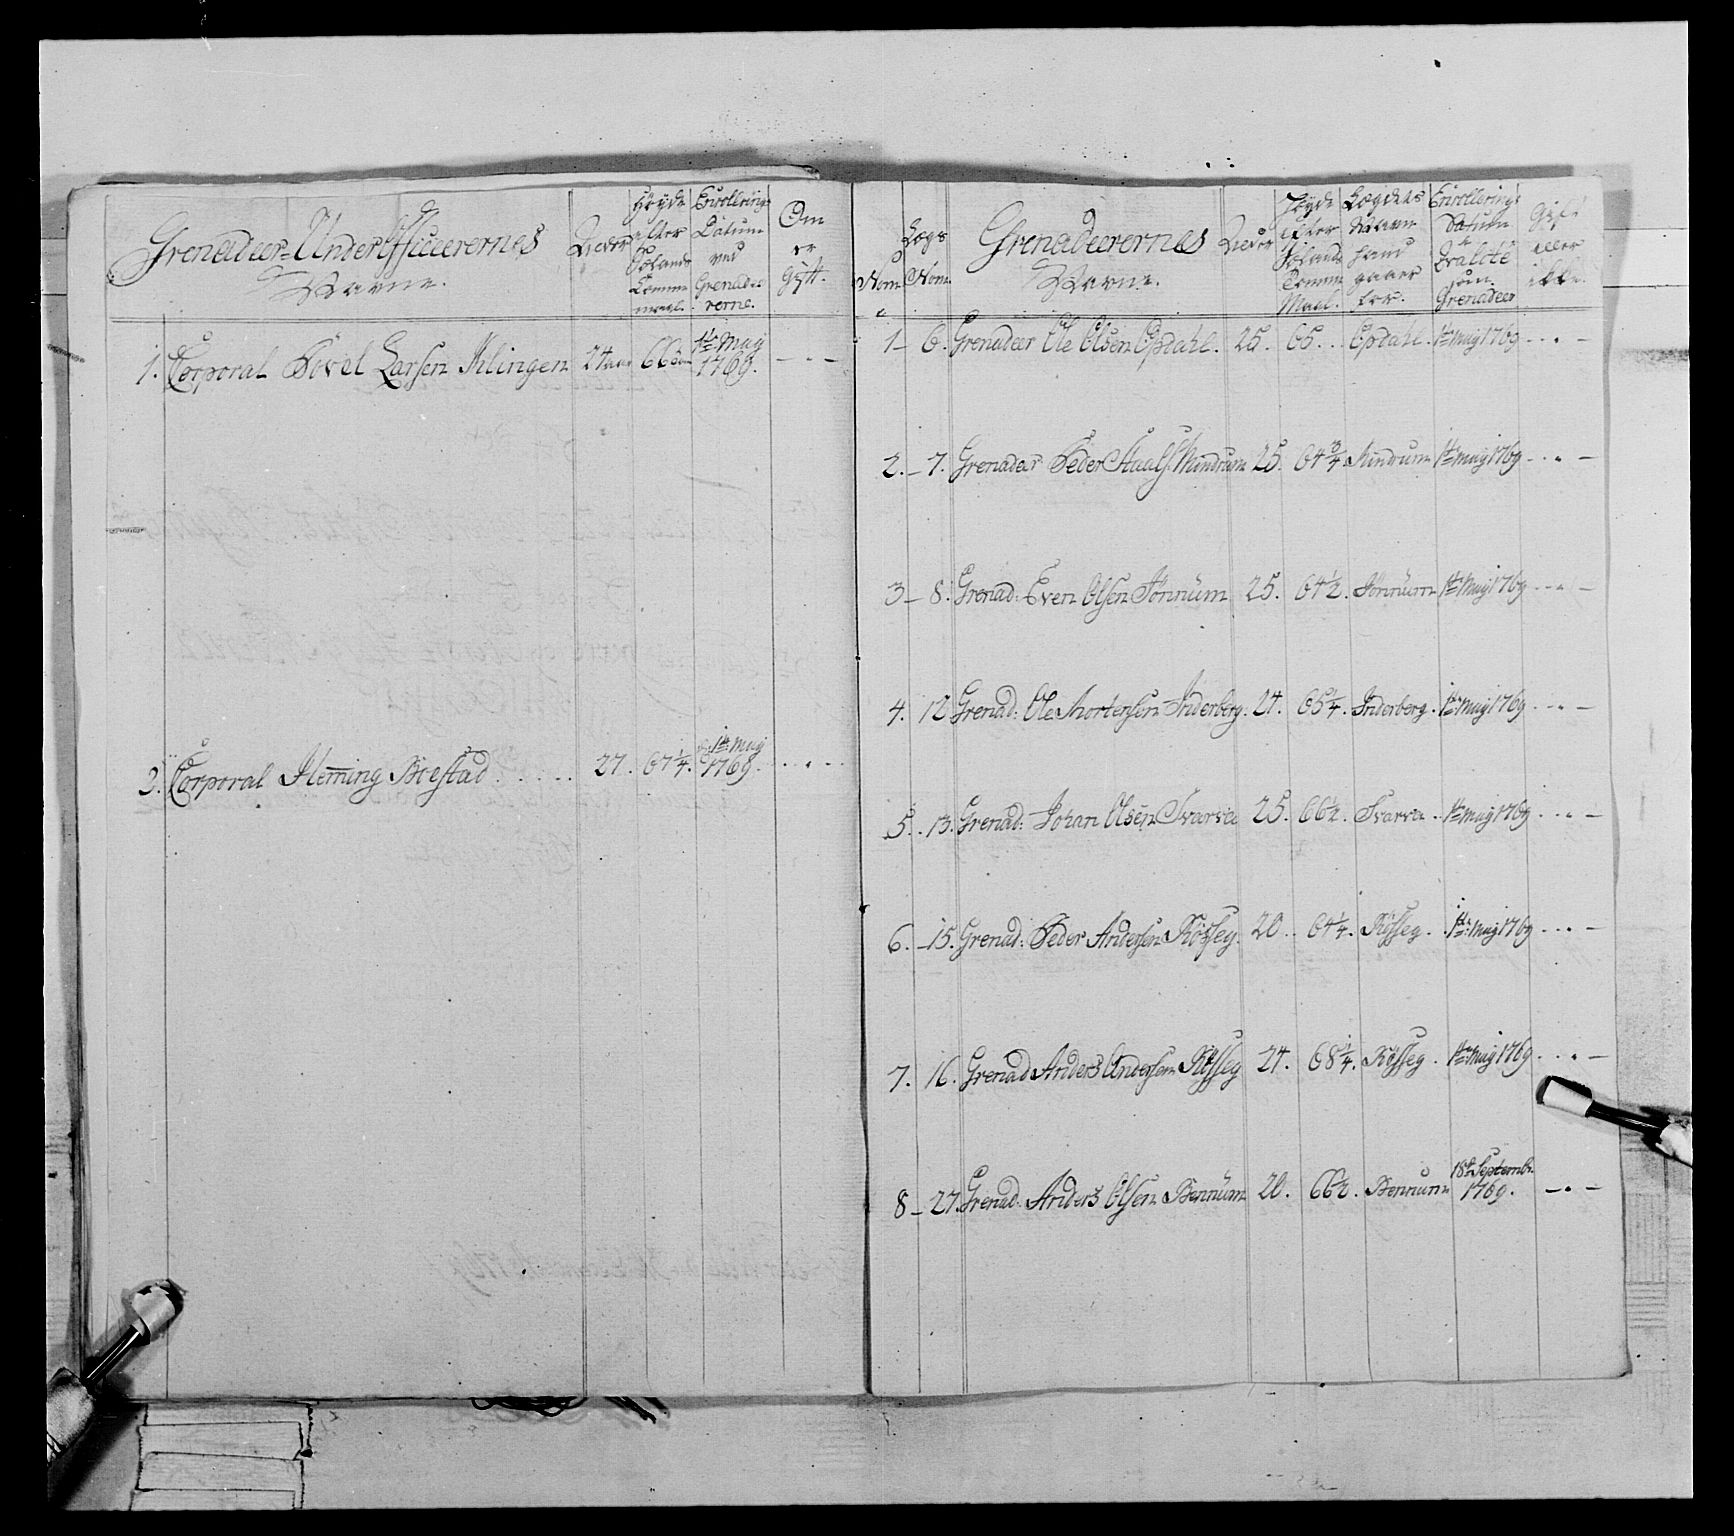 Grenadeer-Underofficeerernes
Navne.
Alder
Höyde
efter
Sölands
Tomme
maal.
Enrollerings
Datum
ved
Grenadee
rerne.
Om
er
Gift.
1. Corporal Povel Larsen Hlingen 24 aar 66 1ste May 1769. - " -
2. Corporal Fleming Boestad . . . . . 27. 67 1/4. d: 1te May 1769. . . " -
Nom
Lægs
Nom.
Grenadeerernes
Navne.
Alder
Höyde
efter
Sölands
Tomme
Maal.
Lægdets
Navn
hand
gaaer
for.
Enrollerings
Datum
i
Qvalité
som
Grenadeer
Gift
eller
ikke.
1 - 6. Grenadeer Ole Olsen Opdahl. 25. 65. . . Opdahl. 1te Maij 1769 - . " -
2. - 7. Grenadeer Peder Haals: Mindrum 25. 64 3/4 Mindrum 1te Maij 1769 - . " -
3 - 8. Grenad: Even Olsen Tönnüm 25. 64 1/2. Tönnüm 1te Maij 1769 - . " -
4. 12. Grenad: Ole Mortensen Inderberg. 24. 65 1/4. Inderberg. 1te Maij 1769 - . " -
5. . 13. Grenad: Johan Olsen Svarva 25. 66 1/2. Svarva . 1te Maij 1769 . . " -
6. - 15. Grenad: Peder Andersen Kösseg. 20 . . 64 1/4. Kösseg . 1te Maij 1769 . . " -
7. 16. Grenad Anders Andersen Kösseg 24. 68 1/4. Kösseg . 1te Maij 1769 . . " -
8 - 27. Grenad: Anders Olsen Bennüm 20. 66 1/2. Bennum 18de Septembr. 1769. - " -